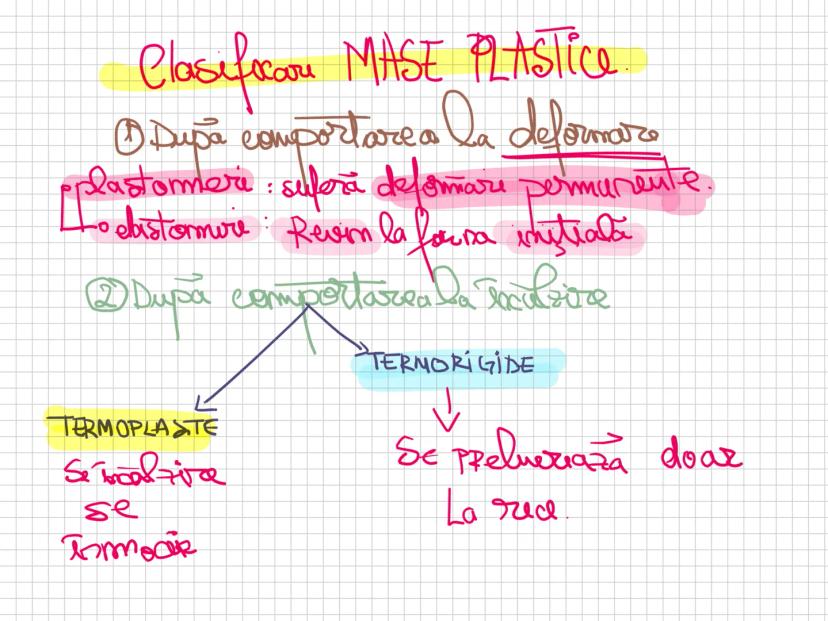 Clasificare MASE PLASTICE
① După comportarea la deformare
plastomeri: suferă deformări permanente.
elastomeri: Revin la forma inițială
② După comportarea la încălzire
TERMORIGIDE
TERMOPLASTE
SE prelucrează doar
La rece.
încălzire
se
înmoaie